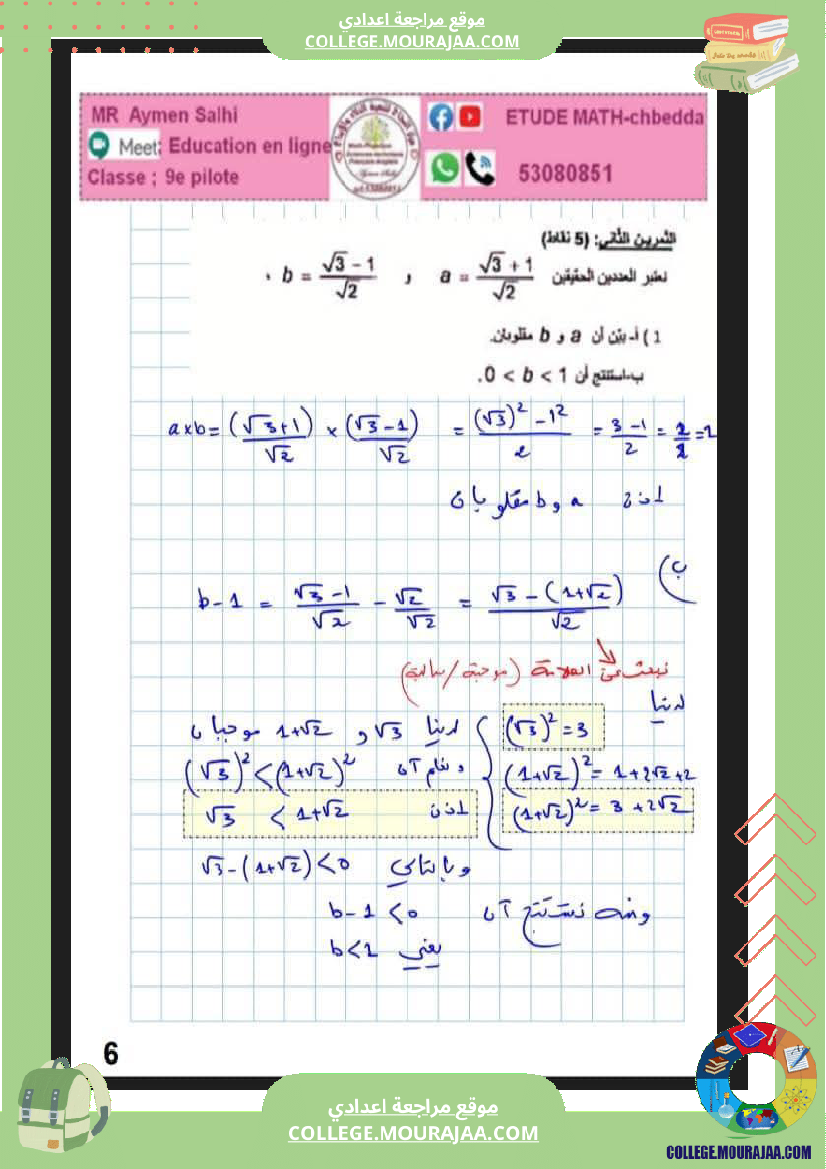 موقع مراجعة اعدادي
COLLEGE.MOURAJAA.COM
MR Aymen Salhi
Meet: Education en ligne
Classe ; 9e pilote
ETUDE MATH-chbedda
53080851
التمرين الثاني: (5 نقاط)
نعتبر العددين الحقيقيين a = (√3 + 1)/√2 و b = (√3 − 1)/√2 .
1) أ- بيّن أن a و b مقلوبان.
ب- استنتج أن 0 < b < 1.
a×b = (√3+1)/√2 × (√3−1)/√2 = ((√3)² − 1²)/2 = (3−1)/2 = 2/2 = 1
اذن a و b مقلوبان
ب)
b−1 = (√3−1)/√2 − √2/√2 = (√3 − (1+√2))/√2
نبحث عن العلامة (موجبة/سالبة)
لدينا
(√3)² = 3
(1+√2)² = 1+2√2+2
(1+√2)² = 3+2√2
لدينا √3 و 1+√2 موجبان
و نعلم آن (√3)² < (1+√2)²
اذن √3 < 1+√2
و بالتالي √3−(1+√2) < 0
ومنه نستنتج آن b−1 < 0
يعني b < 1
6
موقع مراجعة اعدادي
COLLEGE.MOURAJAA.COM
COLLEGE.MOURAJAA.COM